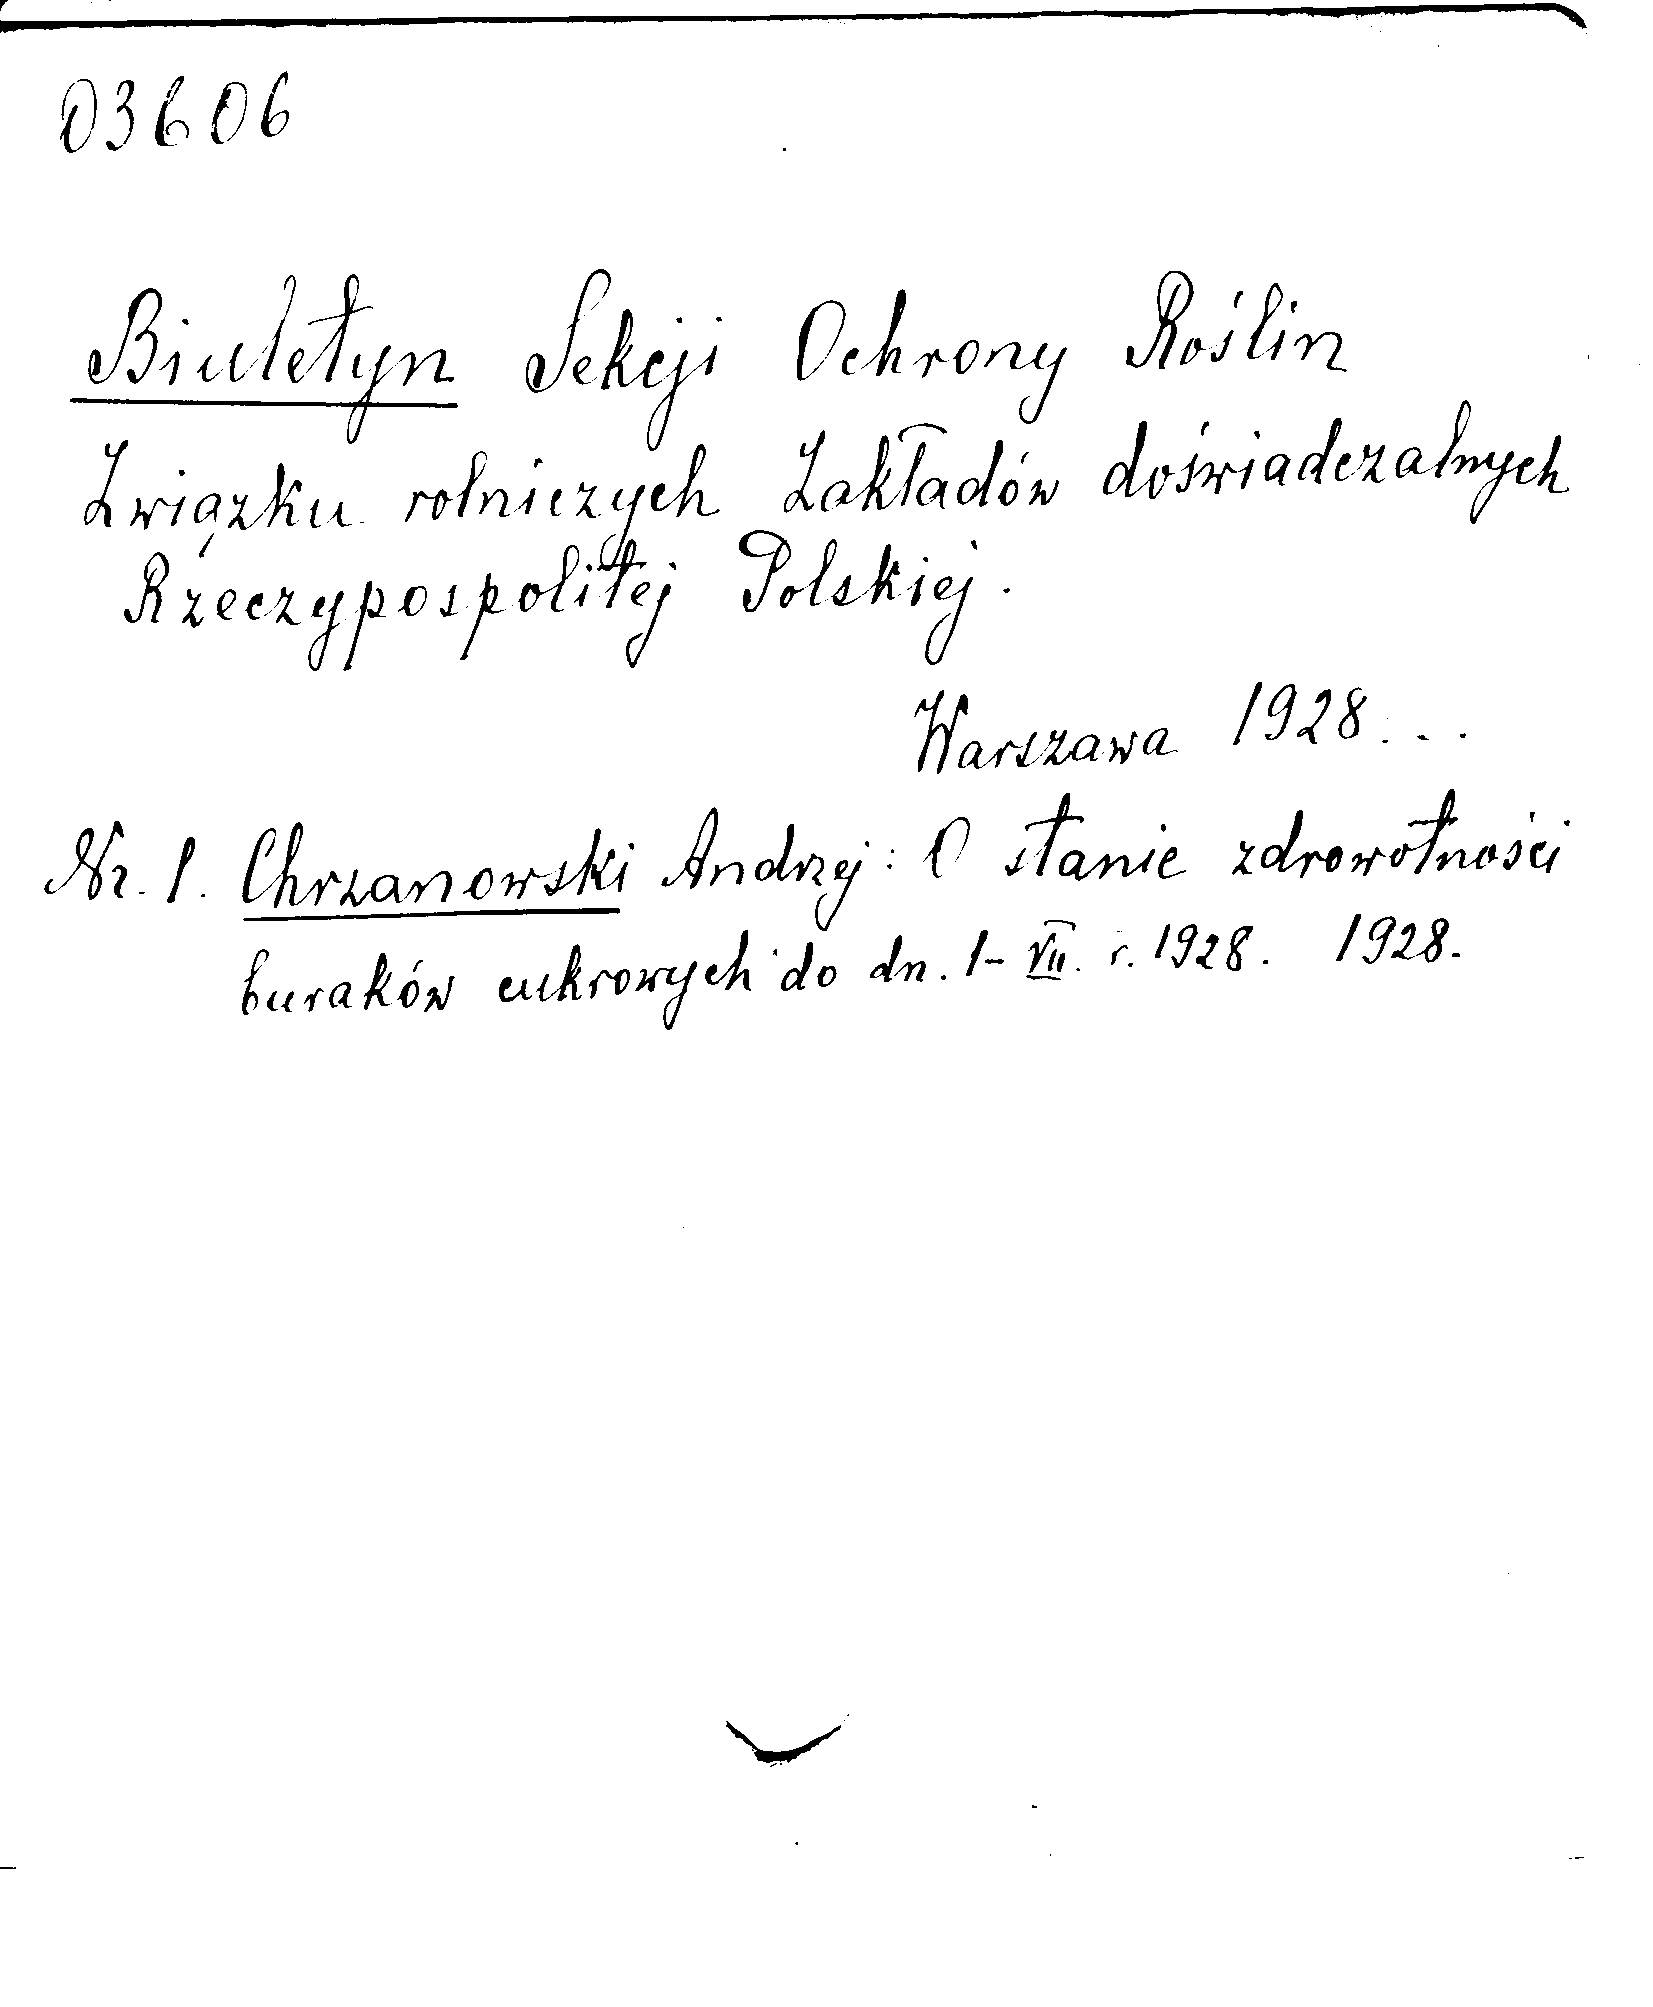 03606
Biuletyn Sekcji Ochrony Roślin
Związku rolniczych Zakładów doświadczalnych
Rzeczypospolitej Polskiej.
Warszawa 1928...
Nr. 1. Chrzanowski Andrzej: O stanie zdrowotności
buraków cukrowych do dn. 1-VII. r. 1928. 1928.